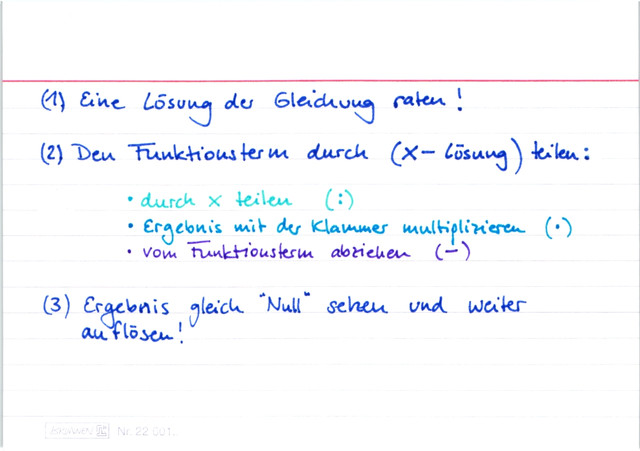 (1) Eine Lösung der Gleichung raten!
(2) Den Funktionsterm durch (x - Lösung) teilen:
• durch x teilen (:)
• Ergebnis mit der Klammer multiplizieren (•)
• vom Funktionsterm abziehen (-)
(3) Ergebnis gleich "Null" setzen und weiter
auflösen!
BRUNNEN Nr. 22 601..